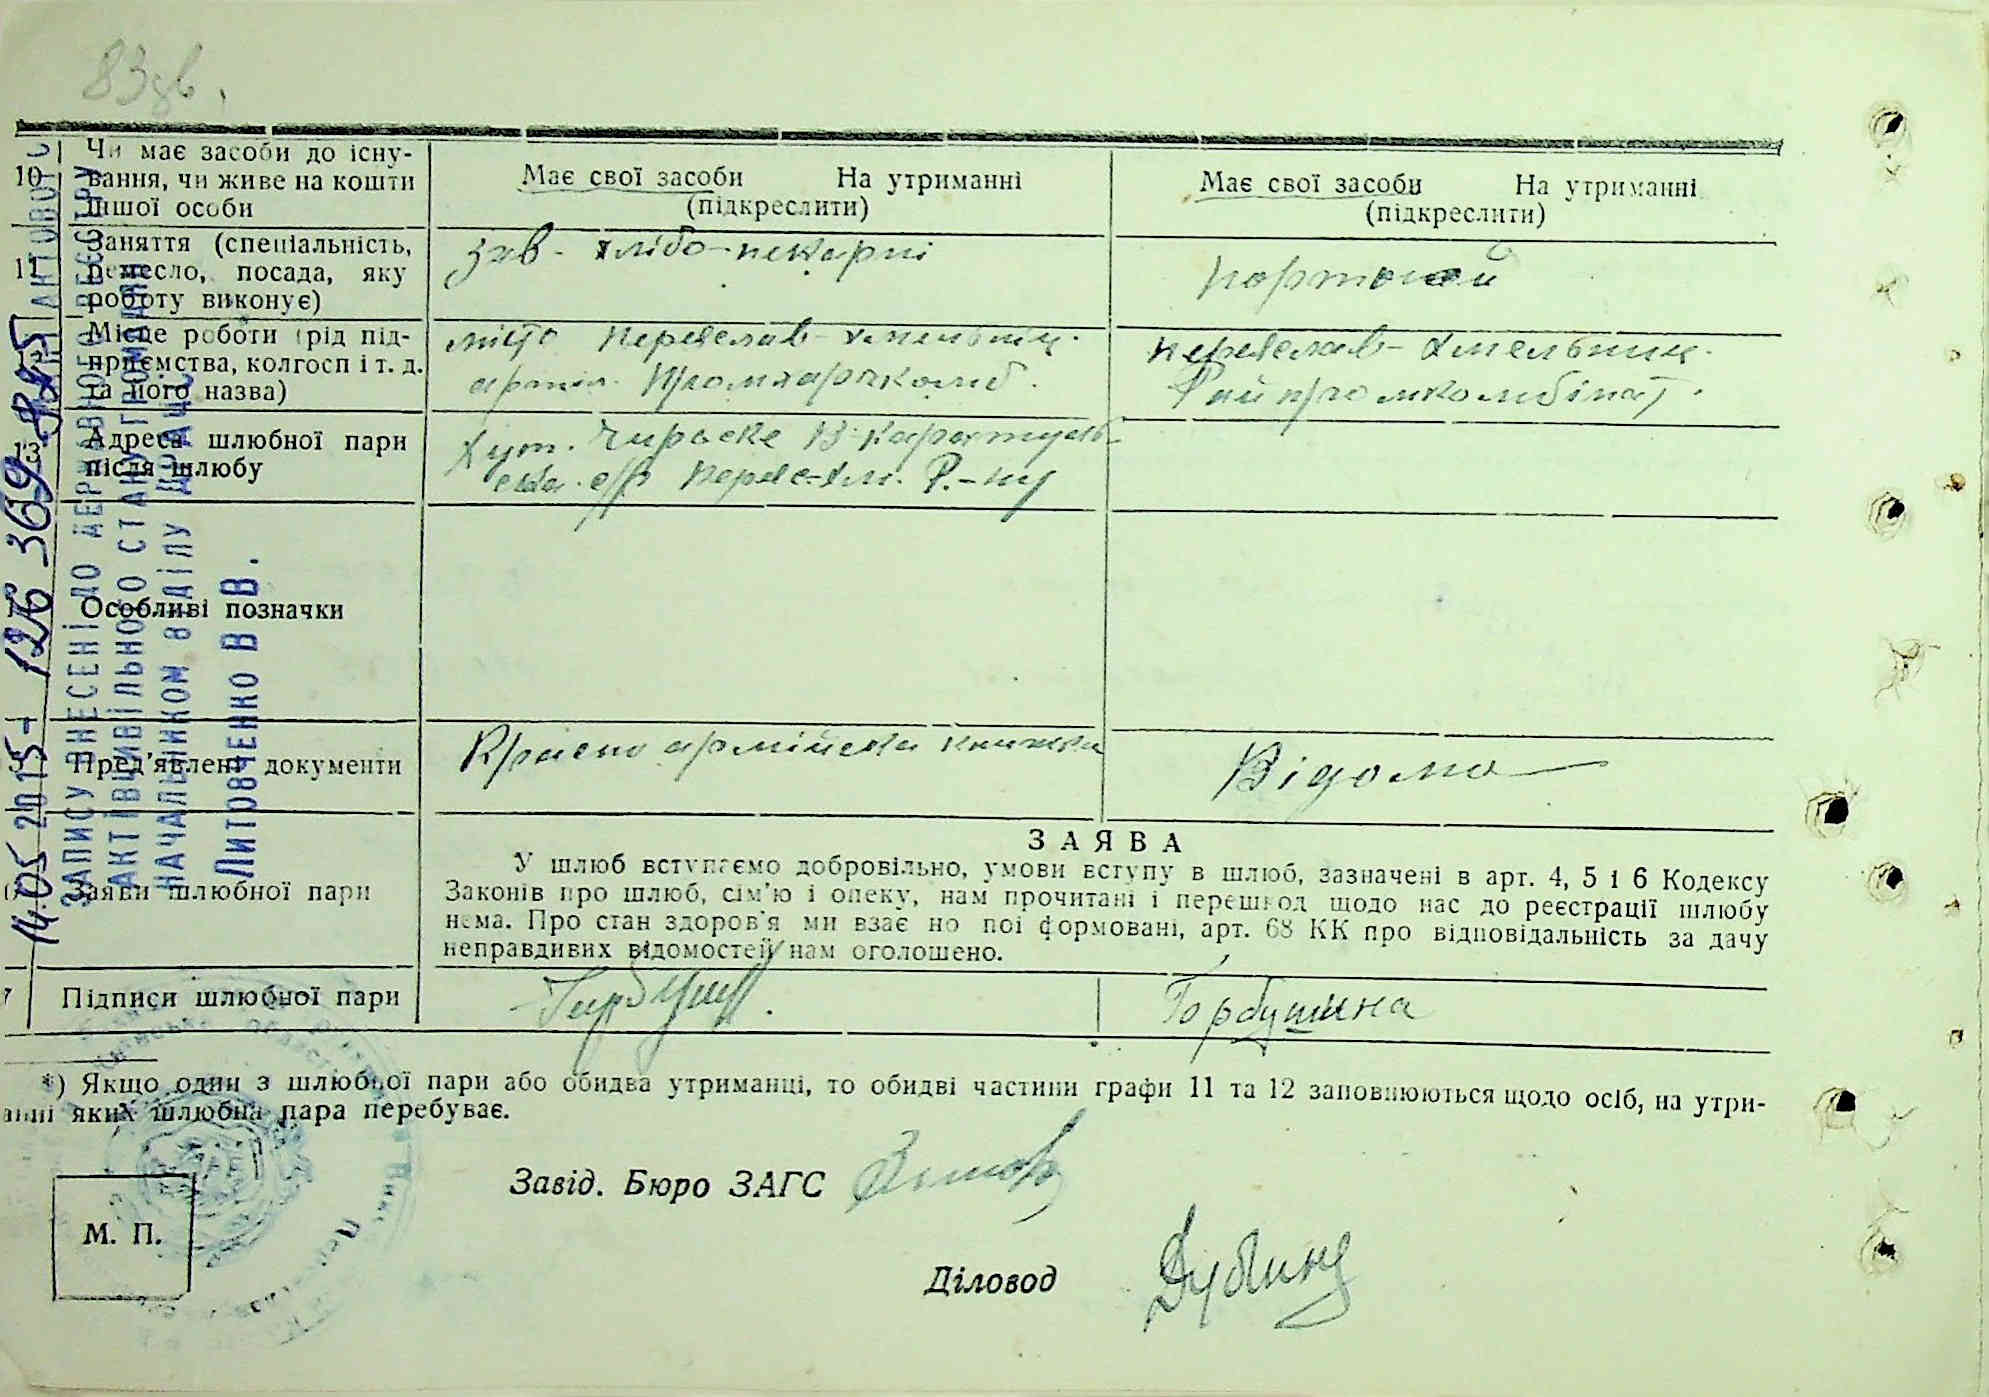 83 зв.
10 Чи має засоби до існу-
вання, чи живе на кошти
іншої особи
Має свої засоби На утриманні
(підкреслити)
Має свої засоби На утриманні
(підкреслити)
11 Заняття (спеціальність,
ремесло, посада, яку
роботу виконує)
зав. хлібо-пекарні
Місце роботи (рід під-
приємства, колгосп і т. д.
та його назва)
місто Переяслав-Хмельниц.
Переяслав-Хмельниц.
Райпромкомбінат.
13 Адреса шлюбної пари
після шлюбу
Хут. В-Каратуль-
ська с/р Р.-ну
Особливі позначки
Пред'явлені документи
Красно армійська книжка
Відома
Заяви шлюбної пари
ЗАЯВА
У шлюб вступаємо добровільно, умови вступу в шлюб, зазначені в арт. 4, 5 і 6 Кодексу
Законів про шлюб, сім'ю і опеку, нам прочитані і перешкод щодо нас до реєстрації шлюбу
нема. Про стан здоров'я ми взаємно поінформовані, арт. 68 КК про відповідальність за дачу
неправдивих відомостей нам оголошено.
7 Підписи шлюбної пари
Горбушина
*) Якщо один з шлюбної пари або обидва утриманці, то обидві частини графи 11 та 12 заповнюються щодо осіб, на утри-
анні яких шлюбна пара перебуває.
Завід. Бюро ЗАГС
М. П.
Діловод
Дубина
14.05 2015 - 12Б 369
ЗАПИСУ ВНЕСЕНІ ДО ДЕРЖАВНОГО РЕЄСТРУ
АКТІВ ЦИВІЛЬНОГО СТАНУ ГРОМАДЯН
НАЧАЛЬНИКОМ ВІДДІЛУ ДРАЦС
Литовченко В В.